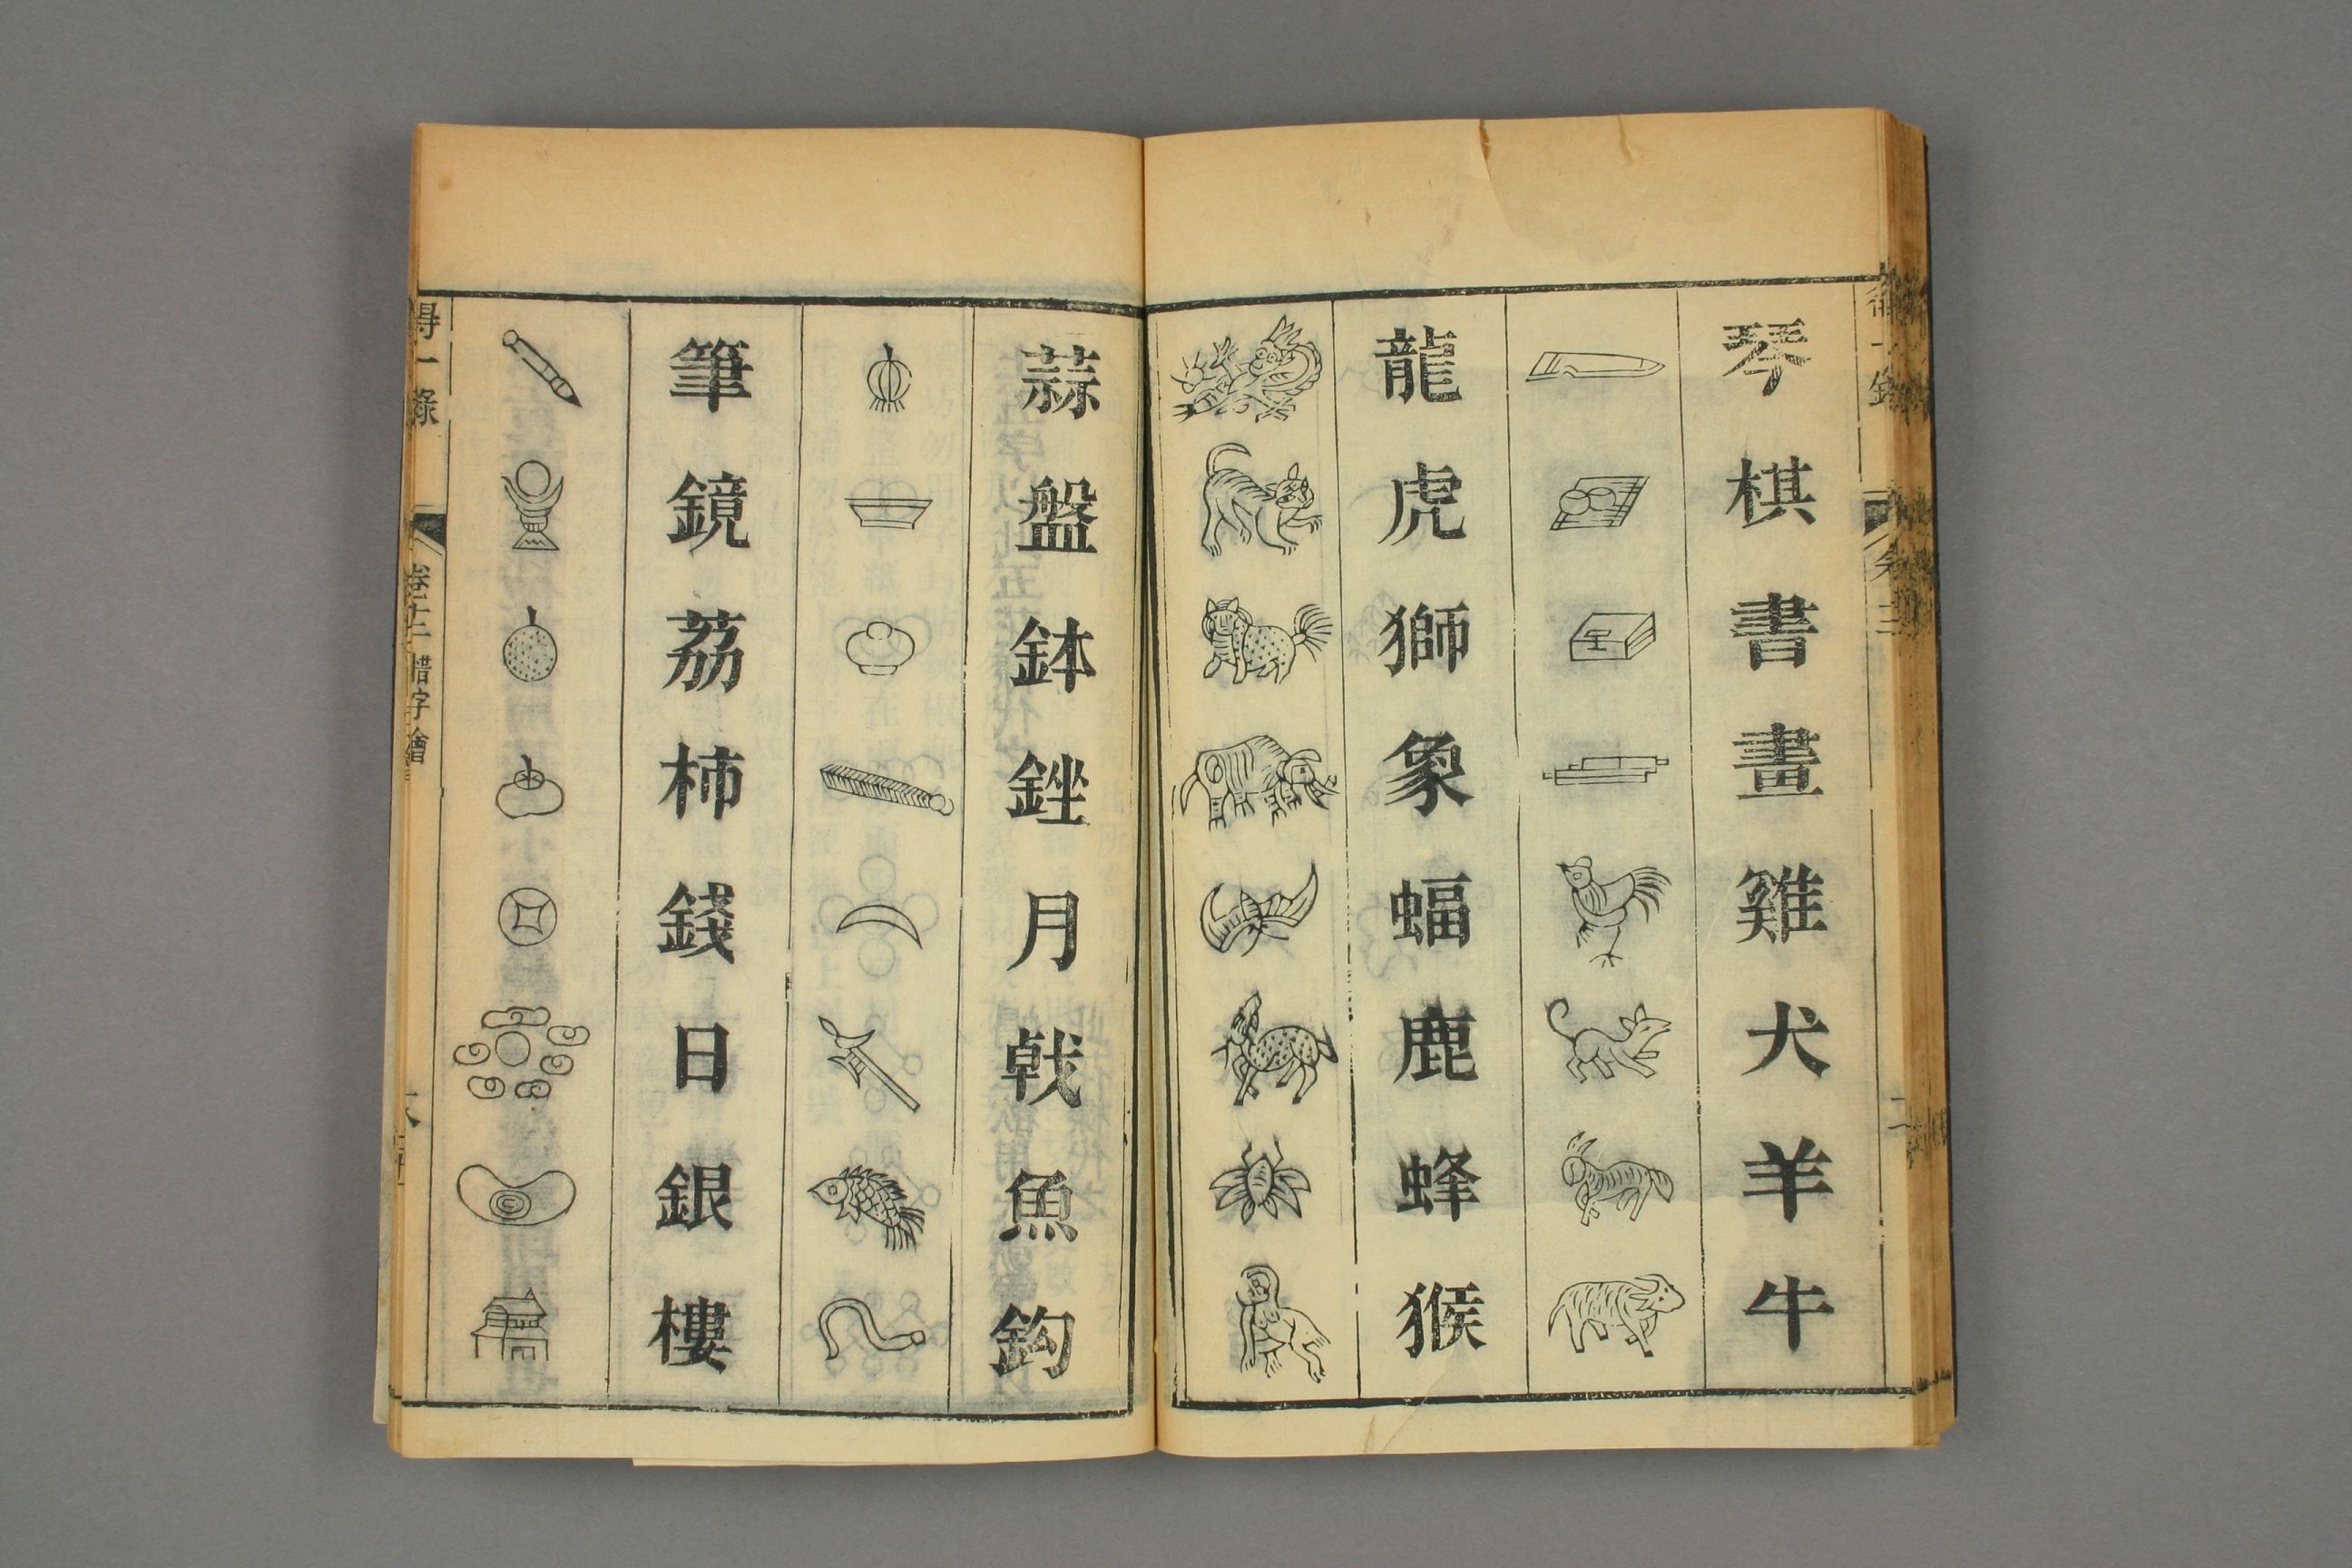 琴棋書畫雞犬羊牛
龍虎獅象蝠鹿蜂猴
蒜盤鉢銼月戟魚鈎
筆鏡荔柿錢日銀樓
得一錄
卷十二 惜字會